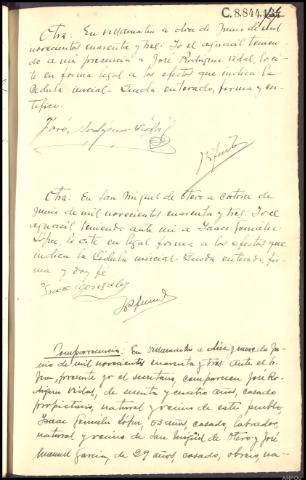 C. 8.844
Otra: En Villamartin a doce de Junio de mil
novecientos cuarenta y tres: Yo el aguacil tenien
do a mi presencia a José Rodriguez Vidal, lo ci
te en forma legal a los efectos que indica la
Cedula inicial. Queda enterado, firma y cer
tifico.
José Rodriguez Vidal
Otra: En San Miguel de Otero a catorce de
Junio de mil novecientos cuarenta y tres. Yo el
aguacil teniendo ante mi a Isaac Gonzalez
López, lo cite en legal forma a los efectos que
indica la Cedula inicial. Queda enterado, fir
ma y doy fé
Isaac Gonzalez
Comparecencia: En Villamartin a diez y nueve de Ju
nio de mil novecientos cuarenta y tres. ante el Sr.
Juez, presente yo el secretario, comparecen José Ro
driguez Vidal, de y cuatro años, casado
propietario, natural y vecino de este pueblo,
Isaac Gonzalez López, 53 años casado, labrador,
natural y vecino de San Miguel de Otero y José
Manuel Garcia, de 29 años, casado, obrero, na-
AHPOU